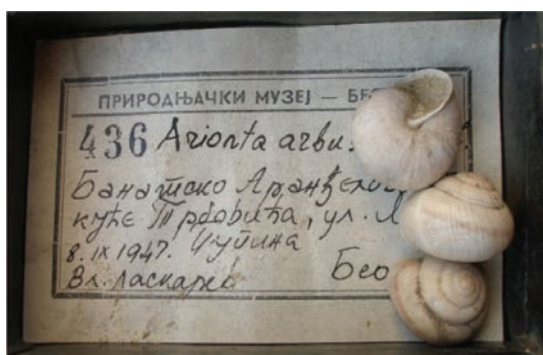 ПРИРОДЊАЧКИ МУЗЕЈ — БЕ
436 Arionta arbu
Банатско Аранђелово
куће Трбовића, ул. Л
8. IX 1947. Чупина
Вл. Ласкарев Бео